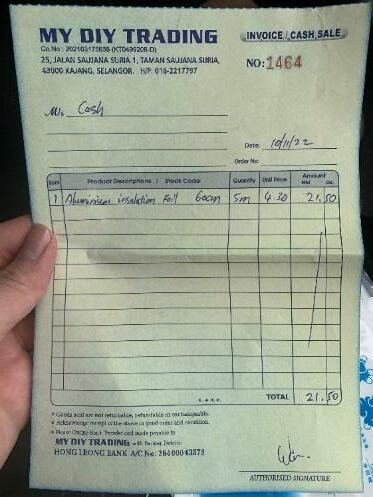 MY DIY TRADING
Co.No: 202103175656 (KT0499208-D)
25, JALAN SAUJANA SURIA 1, TAMAN SAUJANA SURIA,
43000 KAJANG, SELANGOR. H/P: 018-2217797
INVOICE / CASH SALE
NO: 1464
M/s. Cash
Date: 10/11/22
Order No:
Item Product Descriptions / Stock Code Quantity Unit Price Amount
RM cts.
1 Aluminium insulation Foil 60cm 5m 4.30 21.50
E. & O. E. TOTAL 21.50
* Goods sold are not returnable, refundable or exchangeable.
* Acknowledge receipt of the above in good order and condition.
* Please Online Bank Transfer and made payable to
MY DIY TRADING with Banker Details:
HONG LEONG BANK A/C No: 20400043575
AUTHORISED SIGNATURE